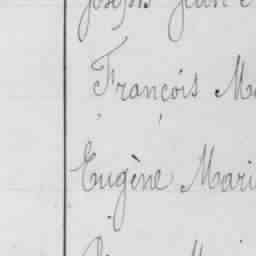 Joseph Jean
François Ma
Eugène Mari